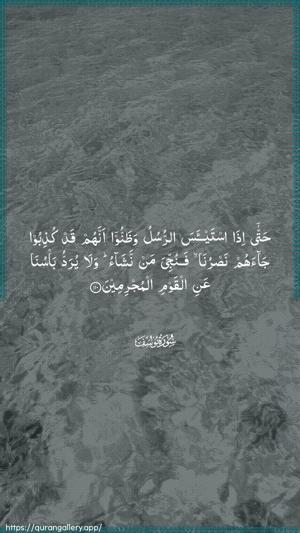 حَتّٰۤی اِذَا اسْتَیْـَٔسَ الرُّسُلُ وَظَنُّوْۤا اَنَّهُمْ قَدْ كُذِبُوْا
جَآءَهُمْ نَصْرُنَا ۙ فَنُجِّیَ مَنْ نَّشَآءُ ؕ وَلَا یُرَدُّ بَاْسُنَا
عَنِ الْقَوْمِ الْمُجْرِمِیْنَ ۝۱۱۰
سُوْرَةُ يُوْسُف
https://qurangallery.app/